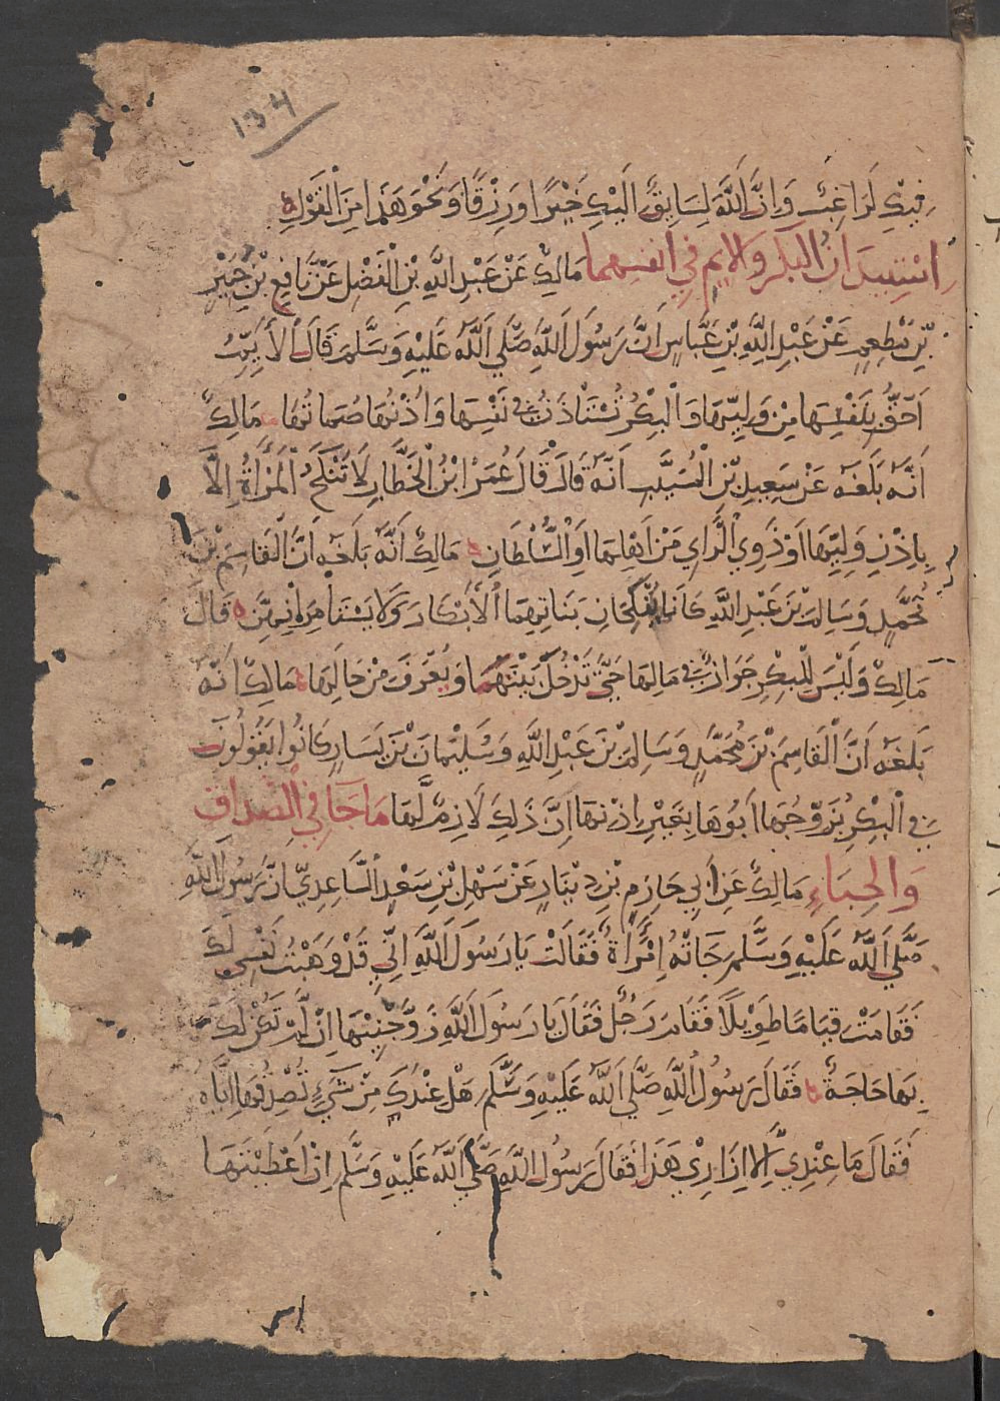 134
فِيكِ لَرَاغِبٌ وَاِنَّ اللَّهَ لَسَايِقٌ اِلَيْكِ خَيْرًا وَرِزْقًا وَنَحْوَ هَذَا مِنَ الْقَوْلِ
اسْتِيذَانُ البكر والايم في انفسهما مَالِكٌ عَنْ عَبْدِ اللَّهِ بْنِ الْفَضْلِ عَنْ نَافِعِ بْنِ جُبَيْرِ
بْنِ مُطْعِمٍ عَنْ عَبْدِ اللَّهِ بْنِ عَبَّاسٍ اَنَّ رَسُولَ اللَّهِ صَلَّي اللَّهُ عَلَيْهِ وَسَلَّمَ قَالَ الْاَيِّمُ
اَحَقُّ بِنَفْسِهَا مِنْ وَلِيِّهَا وَالْبِكْرُ تُسْتَاْذَنُ فِي نَفْسِهَا وَاِذْنُهَا صُمَاتُهَا مَالِكٌ
اَنَّهُ بَلَغَهُ عَنْ سَعِيدِ بْنِ الْمُسَيَّبِ اَنَّهُ قَالَ قَالَ عُمَرُ ابْنُ الْخَطَّابِ لَا تُنْكَحُ الْمَرْاَةُ اِلَّا
بِاِذْنِ وَلِيِّهَا اَوْ ذَوِي الرَّاي مِنْ اَهْلِهَا اَوِ السُّلْطَانِ مَالِكٌ اَنَّهُ بَلَغَهُ اَنَّ الْقَاسِمَ بْنَ
مُحَمَّدٍ وَسَالِمَ بْنَ عَبْدِ اللَّهِ كَانَا يُنْكِحَانِ بَنَاتِهِمَا الْاَبْكَارَ وَلَا يَسْتَامِرَانِهِنَّ قَالَ
مَالِكٌ وَلَيْسَ لِلْبِكْرِ جَوَازٌ فِي مَالِهَا حَتَّي تَدْخُلَ بَيْتَهَا وَيُعْرَفَ مِنْ حَالِهَا مَالِكٌ اَنَّهُ
بَلَغَهُ اَنَّ الْقَاسِمَ بْنَ مُحَمَّدٍ وَسَالِمَ بْنَ عَبْدِ اللَّهِ وَسُلَيْمَانَ بْنَ يَسَارٍ كَانُوا يَقُولُونَ
فِي الْبِكْرِ يُزَوِّجُهَا اَبُوهَا بِغَيْرِ اِذْنِهَا اِنَّ ذَلِكَ لَازِمٌ لَهَا مَا جَا فِي الصَّدَاقِ
وَالحِبَاءِ مَالِكٌ عَنْ اَبِي حَازِمِ بْنِ دِينَارٍ عَنْ سَهْلِ بْنِ سَعْدٍ السَّاعِدِيِّ اَنَّ رَسُولَ اللَّهِ
صَلَّي اللَّهُ عَلَيْهِ وَسَلَّمَ جَاتْهُ اِمْرَاَةٌ فَقَالَتْ يَا رَسُولَ اللَّهِ اِنِّي قَدْ وَهَبْتُ نَفْسِي لَكَ
فَقَامَتْ قِيَامًا طَوِيْلًا فَقَامَ رَجُلٌ فَقَالَ يَا رَسُولَ اللَّهِ زَوِّجْنِيْهَا اِنْ لَمْ تَكُنْ لَكَ
بِهَا حَاجَةٌ فَقَالَ رَسُولُ اللَّهِ صَلَّي اللَّهُ عَلَيْهِ وَسَلَّمَ هَلْ عِنْدَكَ مِنْ شَيْءٍ تُصْدِقُهَا اِيَّاهُ
فَقَالَ مَا عِنْدِي اِلَّا اِزَارِيْ هَذَا فَقَالَ رَسُولُ اللَّهِ صَلَّي اللَّهُ عَلَيْهِ وَسَلَّمَ اِنْ اَعْطَيْتَهَا